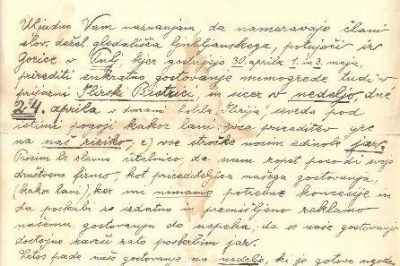 Uljudno Vam naznanjam, da nameravajo člani
slov. dežel. gledališča ljubljanskega, potujoč iz
Gorice v Pulj, kjer gostujejo 30. aprila 1. in 3. maja,
prirediti enkratno gostovanje mimogrede tudi v
prijazni Ilirski Bistrici, na večer v nedeljo, dné
24. aprila v dvorani hotela "Ilirija", seveda pod
istimi pogoji kakor lani: prireditev gre
na naš riziko, vse stroške nosim edinole jaz.
Prosim le slavno čitalnico, da nam zopet posodi svojo
društveno firmo, kot prirediteljica našega gostovanja,
(kakor lani) ker mi nimamo potrebne koncesije in
da poskrbi za izdatno in premišljeno reklamo
našemu gostovanju do uspeha, da se naše gostovanje
dostojno završi zato poskrbim jaz.
Letos pade naše gostovanje na nedeljo, ki je gotovo ugoden